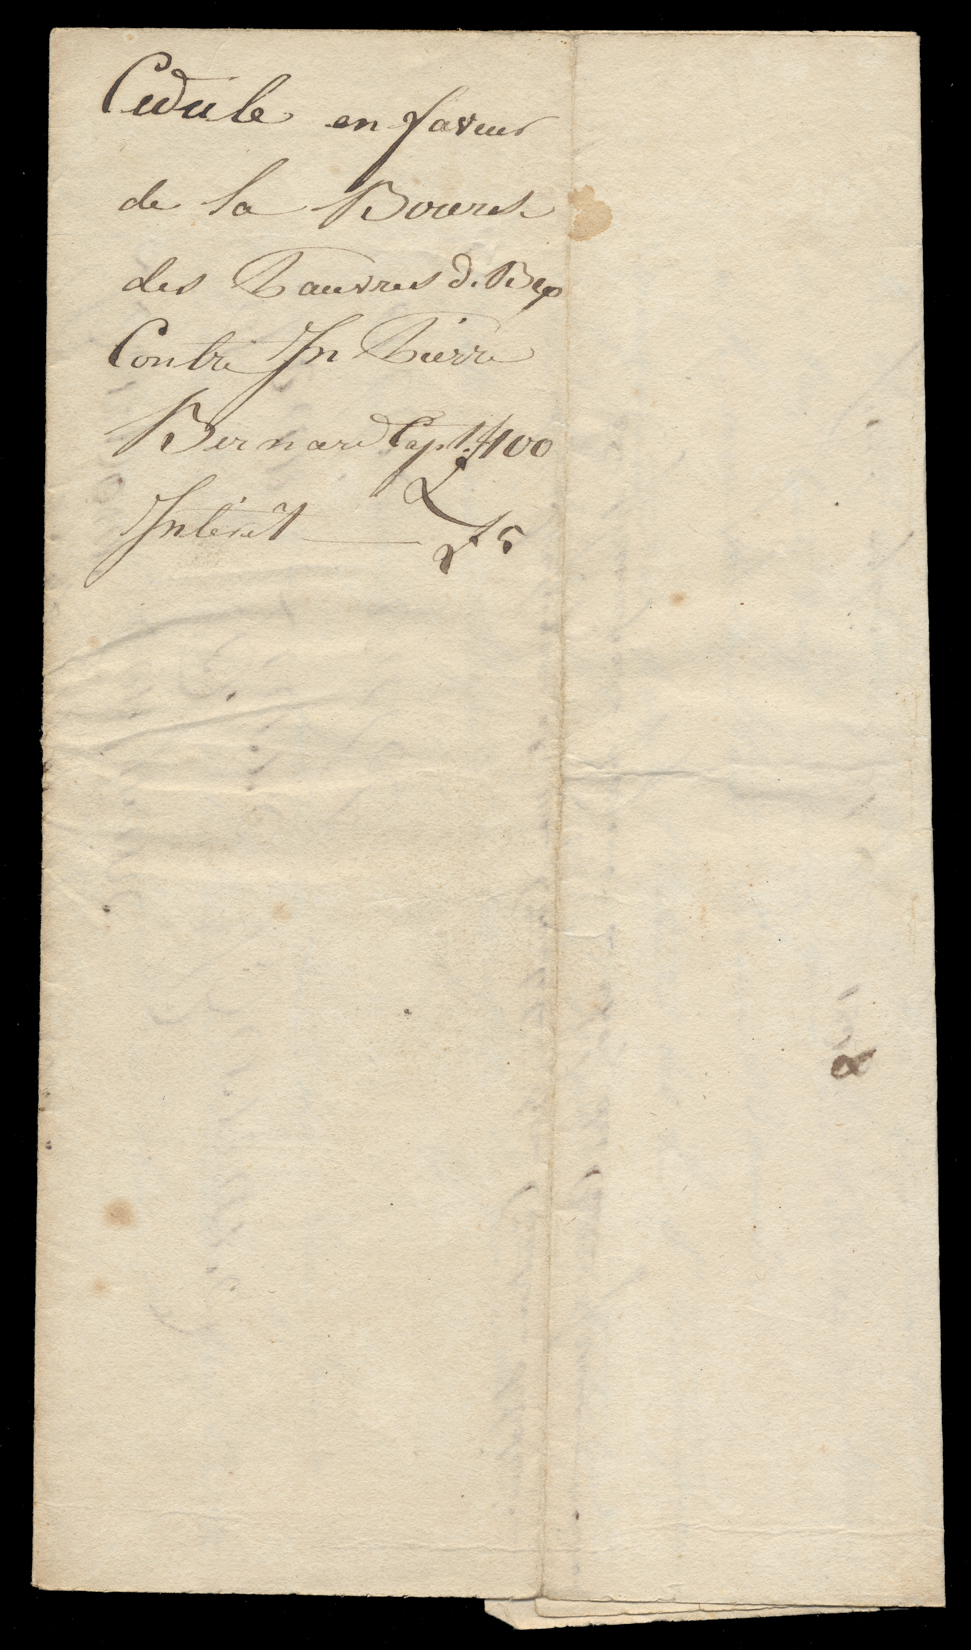 Cedule en faveur
de la Bourse
des Pauvres de Bex
Contre Jn Pierre
Bernard Capl. £ 400
Interêt — £ 5